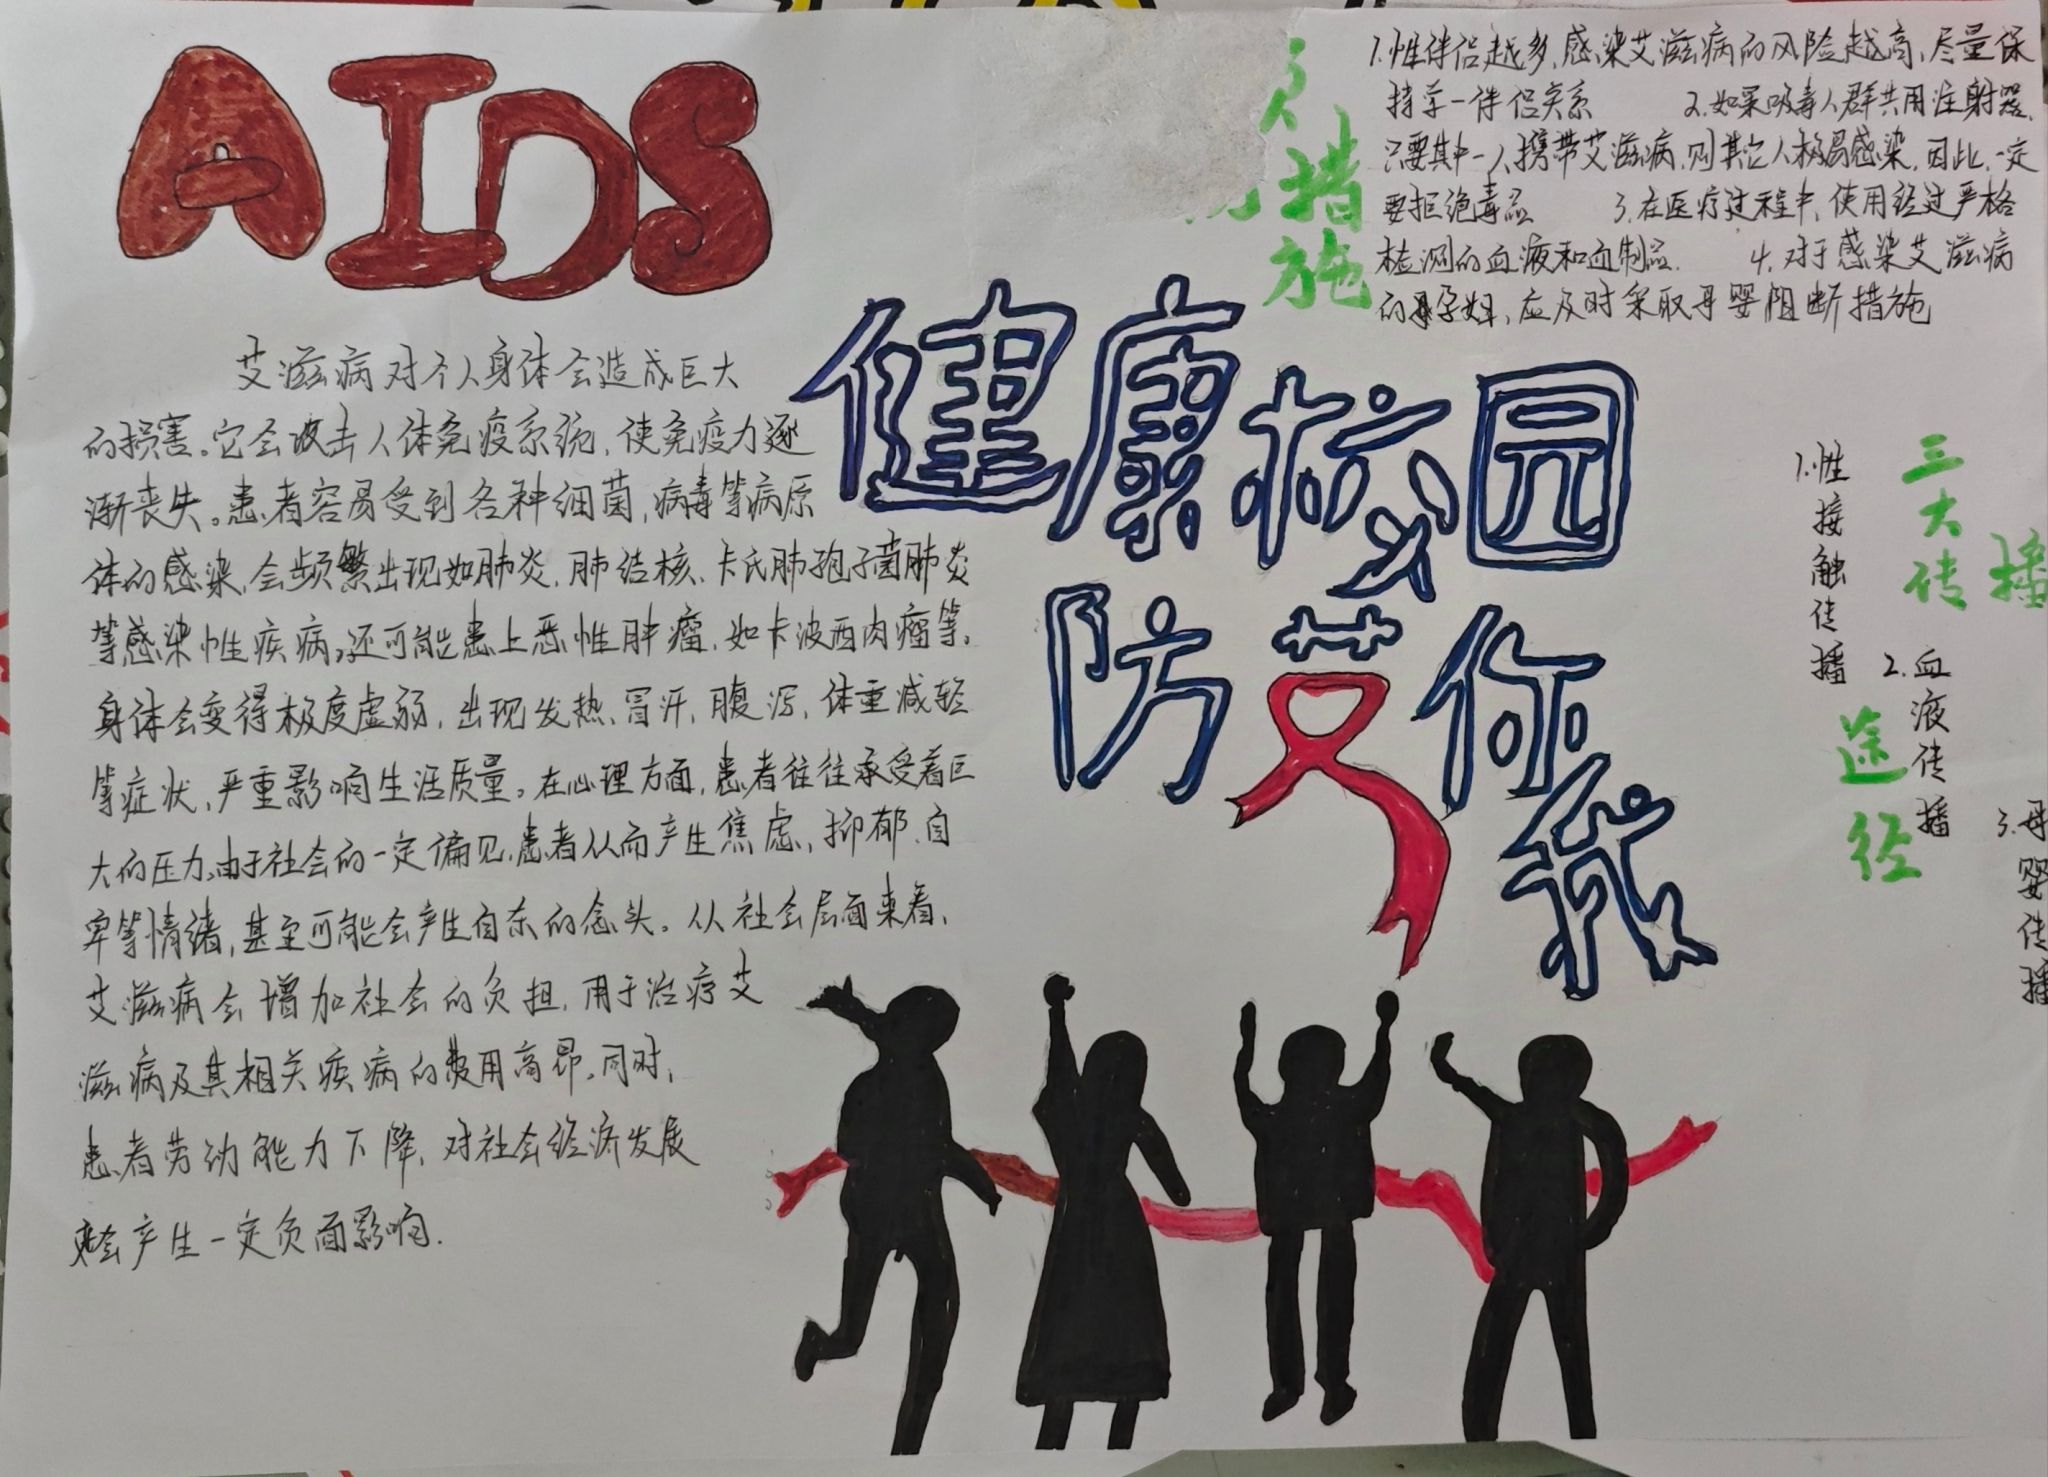 AIDS
艾滋病对个人身体会造成巨大
的损害。它会攻击人体免疫系统,使免疫力逐
渐丧失。患者容易受到各种细菌,病毒等病原
体的感染,会频繁出现如肺炎,肺结核、卡氏肺孢子菌肺炎
等感染性疾病,还可能患上恶性肿瘤,如卡波西肉瘤等。
身体会变得极度虚弱,出现发热、冒汗,腹泻,体重减轻
等症状,严重影响生活质量。在心理方面,患者往往承受着巨
大的压力,由于社会的一定偏见,患者从而产生焦虑,抑郁、自
卑等情绪,甚至可能会产生自杀的念头。从社会层面来看,
艾滋病会增加社会的负担,用于治疗艾
滋病及其相关疾病的费用高昂。同时,
患者劳动能力下降,对社会经济发展
会产生一定负面影响.
健康校园
防艾你我
措施
1.性伴侣越多,感染艾滋病的风险越高,尽量保
持单一伴侣关系 2.如果吸毒人群共用注射器,
只要其中一人携带艾滋病,则其它人极易感染,因此,一定
要拒绝毒品 3.在医疗过程中,使用经过严格
检测的血液和血制品. 4.对于感染艾滋病
的孕妇,应及时采取母婴阻断措施
三大传播途径
1.性接触传播
2.血液传播
3.母婴传播